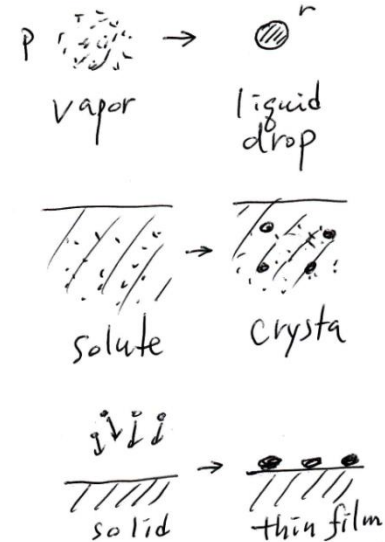 P
r
vapor
liquid
drop
solute
crysta
solid
thin film